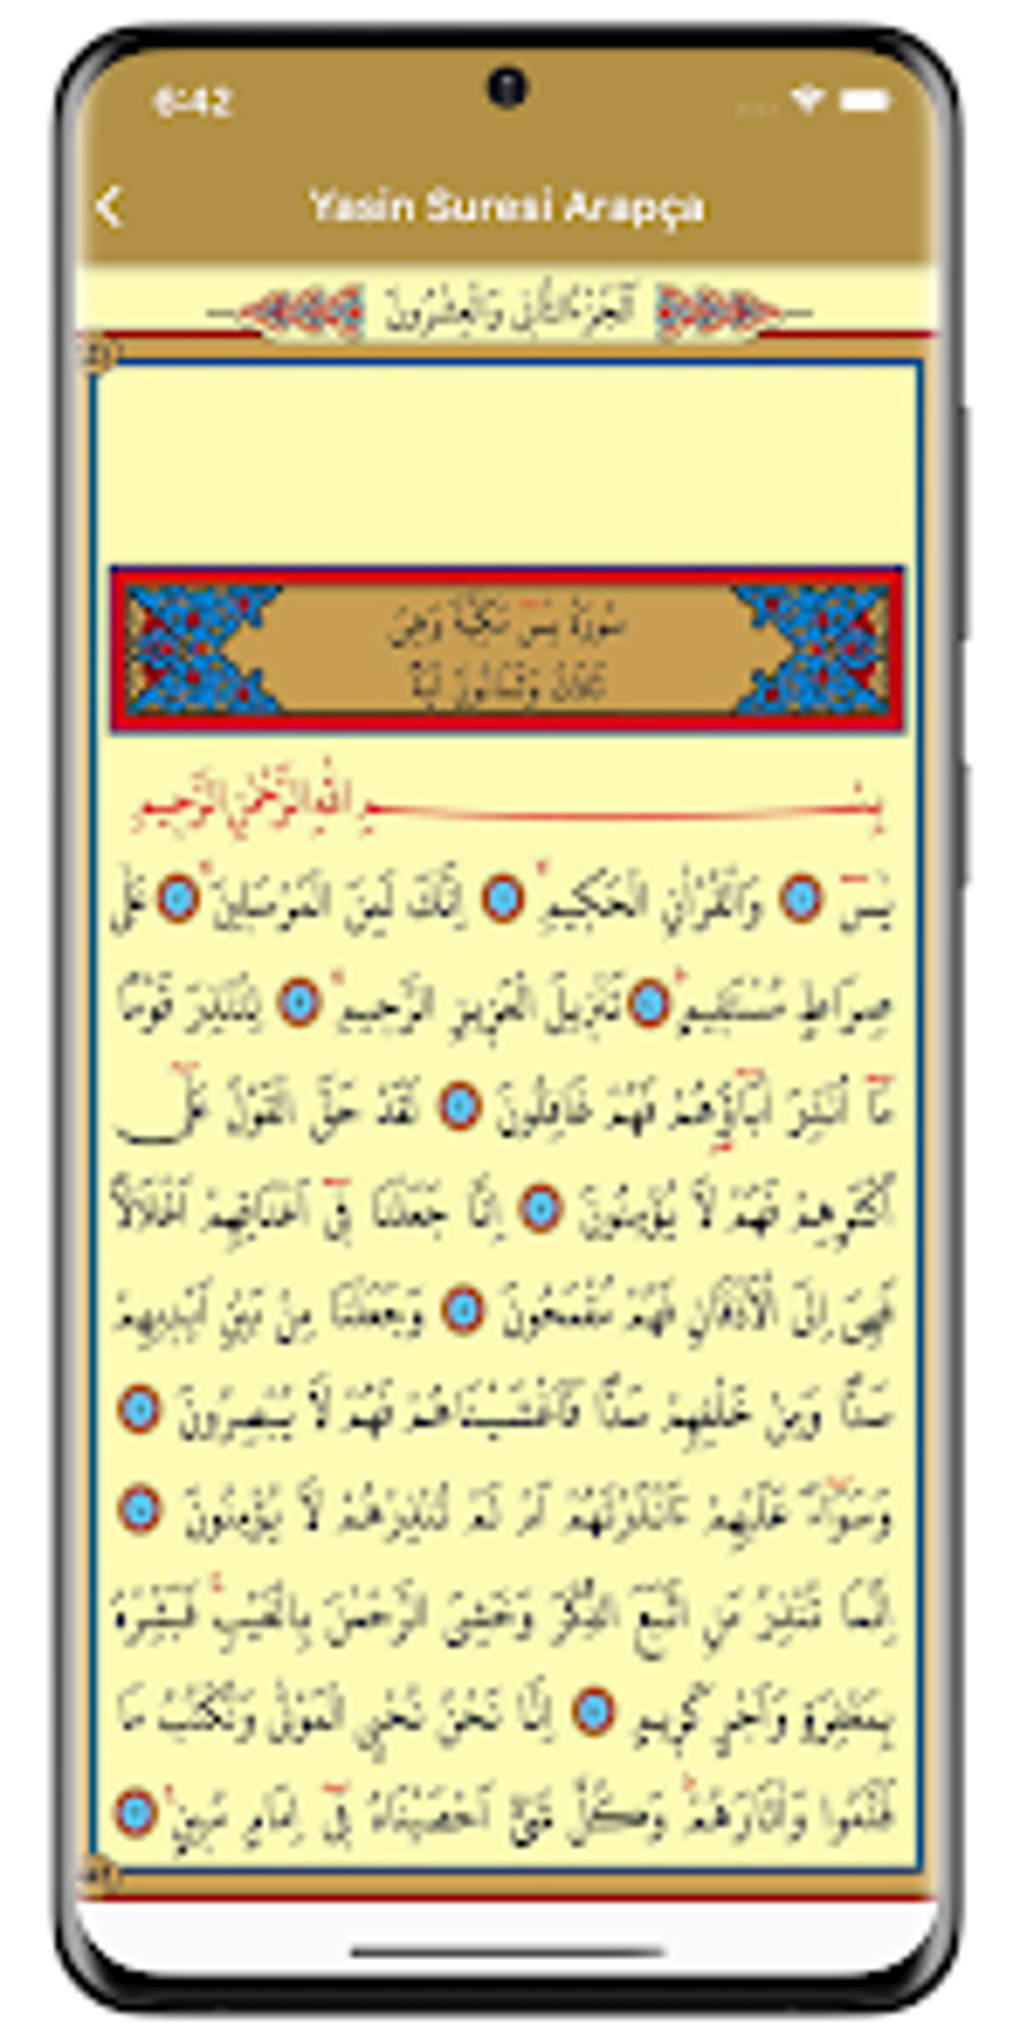 6:42
Yasin Suresi Arapça
اَلْجُزْءُ الثَّانِي وَالْعِشْرُونَ
سُورَةُ يٰسٓ مَكِّيَّةٌ وَهِيَ
ثَلَاثٌ وَثَمَانُونَ اٰيَةً
بِسْمِ اللّٰهِ الرَّحْمٰنِ الرَّحِيمِ
يٰسٓ وَالْقُرْاٰنِ الْحَكِيمِ اِنَّكَ لَمِنَ الْمُرْسَلِينَ عَلٰى
صِرَاطٍ مُسْتَقِيمٍ تَنْزِيلَ الْعَزِيزِ الرَّحِيمِ لِتُنْذِرَ قَوْمًا
مَٓا اُنْذِرَ اٰبَٓاؤُ۬هُمْ فَهُمْ غَافِلُونَ لَقَدْ حَقَّ الْقَوْلُ عَلٰٓى
اَكْثَرِهِمْ فَهُمْ لَا يُؤْمِنُونَ اِنَّا جَعَلْنَا فِٓي اَعْنَاقِهِمْ اَغْلَالًا
فَهِيَ اِلَى الْاَذْقَانِ فَهُمْ مُقْمَحُونَ وَجَعَلْنَا مِنْ بَيْنِ اَيْدِيهِمْ
سَدًّا وَمِنْ خَلْفِهِمْ سَدًّا فَاَغْشَيْنَاهُمْ فَهُمْ لَا يُبْصِرُونَ
وَسَوَٓاءٌ عَلَيْهِمْ ءَاَنْذَرْتَهُمْ اَمْ لَمْ تُنْذِرْهُمْ لَا يُؤْمِنُونَ
اِنَّمَا تُنْذِرُ مَنِ اتَّبَعَ الذِّكْرَ وَخَشِيَ الرَّحْمٰنَ بِالْغَيْبِ فَبَشِّرْهُ
بِمَغْفِرَةٍ وَاَجْرٍ كَرِيمٍ اِنَّا نَحْنُ نُحْيِ الْمَوْتٰى وَنَكْتُبُ مَا
قَدَّمُوا وَاٰثَارَهُمْ وَكُلَّ شَيْءٍ اَحْصَيْنَاهُ فِٓي اِمَامٍ مُبِينٍ